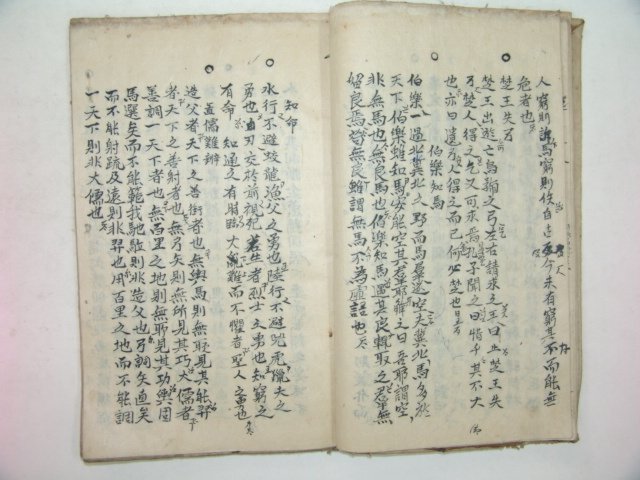 人窮則詐馬窮則佚自古至今未有窮其下而能無
危者也
楚王失弓
楚王出遊亡烏號之弓左右請求之王曰止楚王失
弓楚人得之又何求焉孔子聞之曰惜乎其不大
也亦曰遺人得之而已何必楚也
伯樂知馬
伯樂一過冀北之野而馬羣遂空夫冀北馬多於
天下伯樂雖知馬安能空其羣耶解之曰吾所謂空
非無馬也無良馬也伯樂知馬遇其良輒取之羣無
留良焉苟無良雖謂無馬不為虛語也
知命
水行不避蛟龍漁父之勇也陸行不避兕虎獵夫之
勇也白刃交於前視死若生者烈士之勇也知窮之
有命知通之有時臨大難而不懼者聖人之勇也
儒難辨
造父者天下之善御者也無輿馬則無所見其能羿
者天下之善射者也無弓矢則無所見其巧大儒者
善調一天下者也無百里之地則無所見其功輿固
馬選矣而不能致遠則非造父也弓調矢直矣
而不能射疏及遠則非羿也用百里之地而不能調
一天下則非大儒也